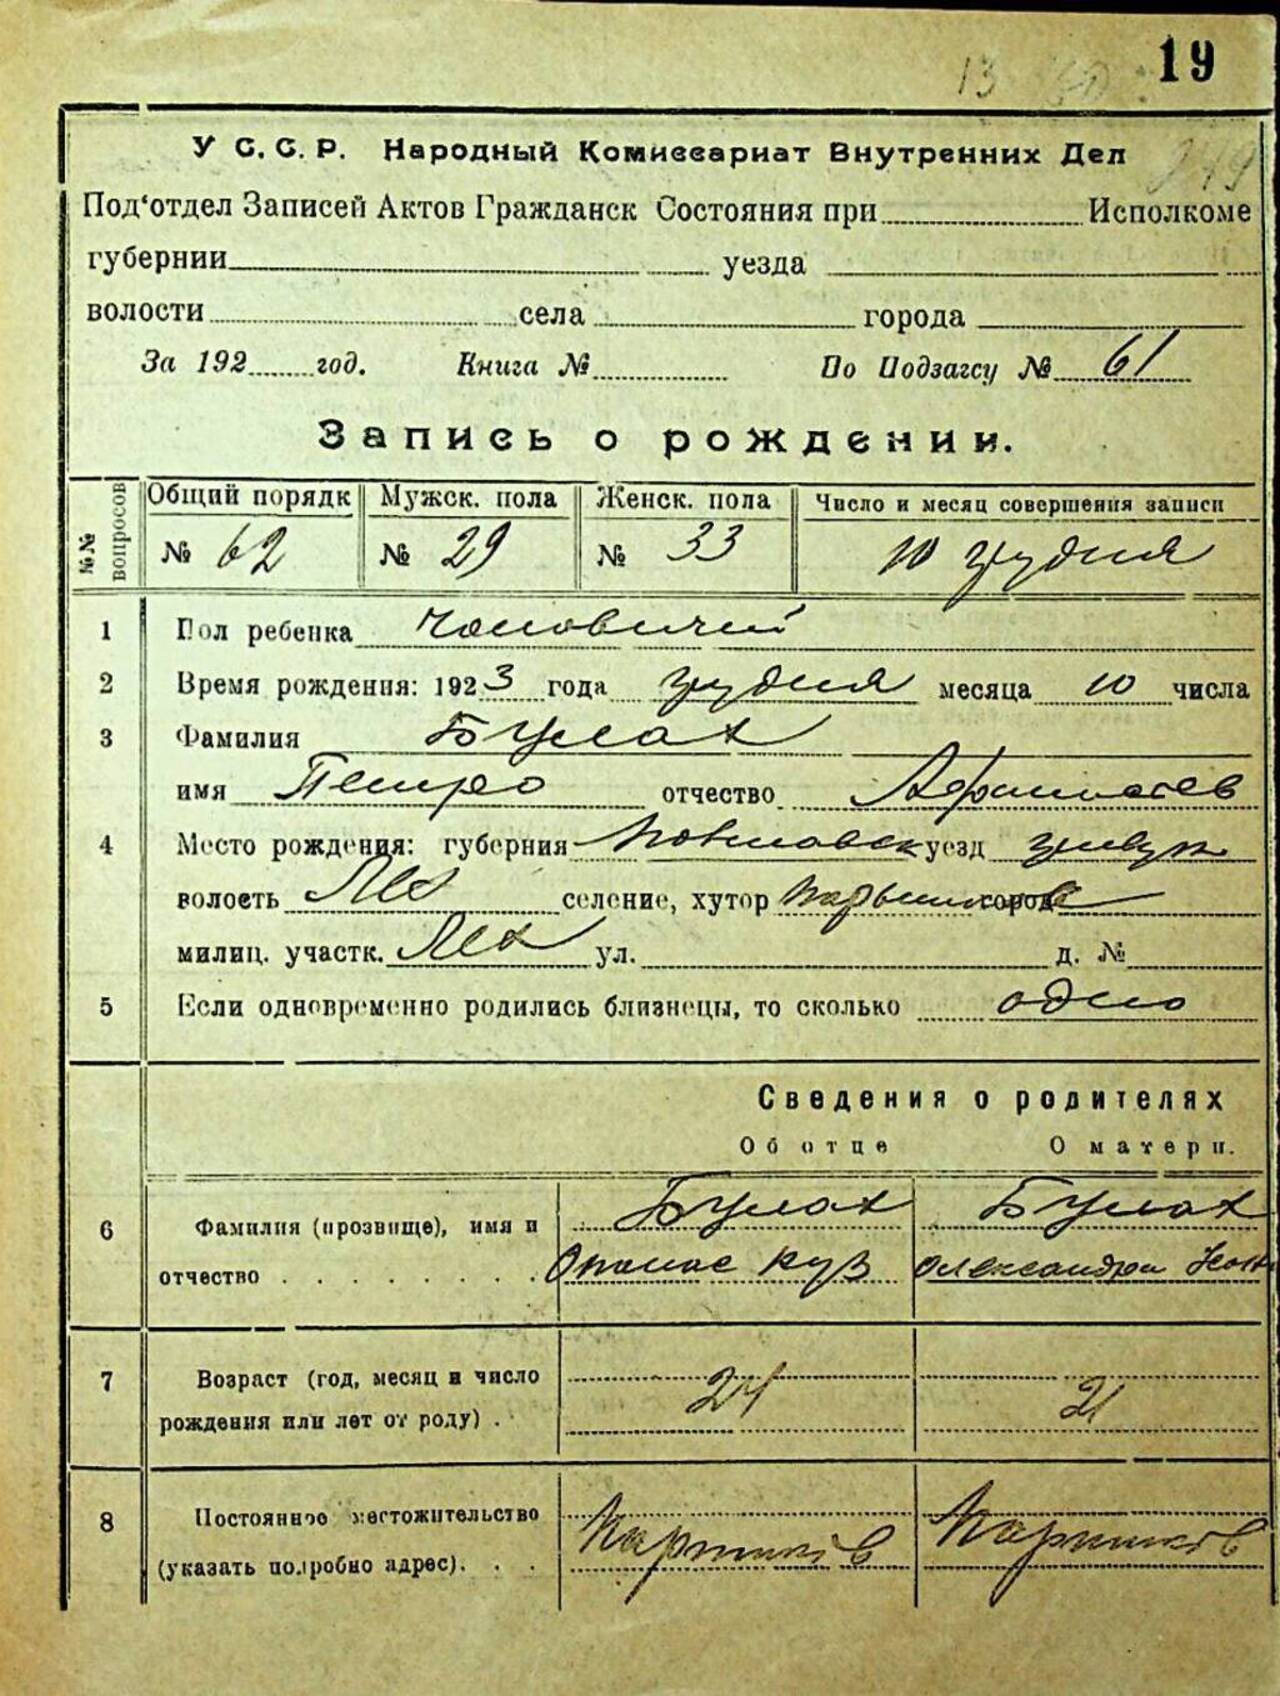 19
13
У С. С. Р. Народный Комиссариат Внутренних Дел
Под'отдел Записей Актов Гражданск Состояния при Исполкоме
губернии уезда
волости села города
За 192 год. Книга № По Подзагсу № 61
Запись о рождении.
№№ вопросов Общий порядк Мужск. пола Женск. пола Число и месяц совершения записи
№ 62 № 29 № 33 10 грудня
1 Пол ребенка чоловичий
2 Время рождения: 1923 года грудня месяца 10 числа
3 Фамилия Булах
имя Петро отчество Афанасьев
4 Место рождения: губерния уезд
волость Лех селение, хутор город
милиц. участк. Лех ул. д. №
5 Если одновременно родились близнецы, то сколько одно
Сведения о родителях
Об отце О матери.
6 Фамилия (прозвище), имя и Булах Булах
отчество Опанас Куз Олександра
7 Возраст (год, месяц и число
рождения или лет от роду) . 24 21
8 Постоянное местожительство
(указать подробно адрес). . .